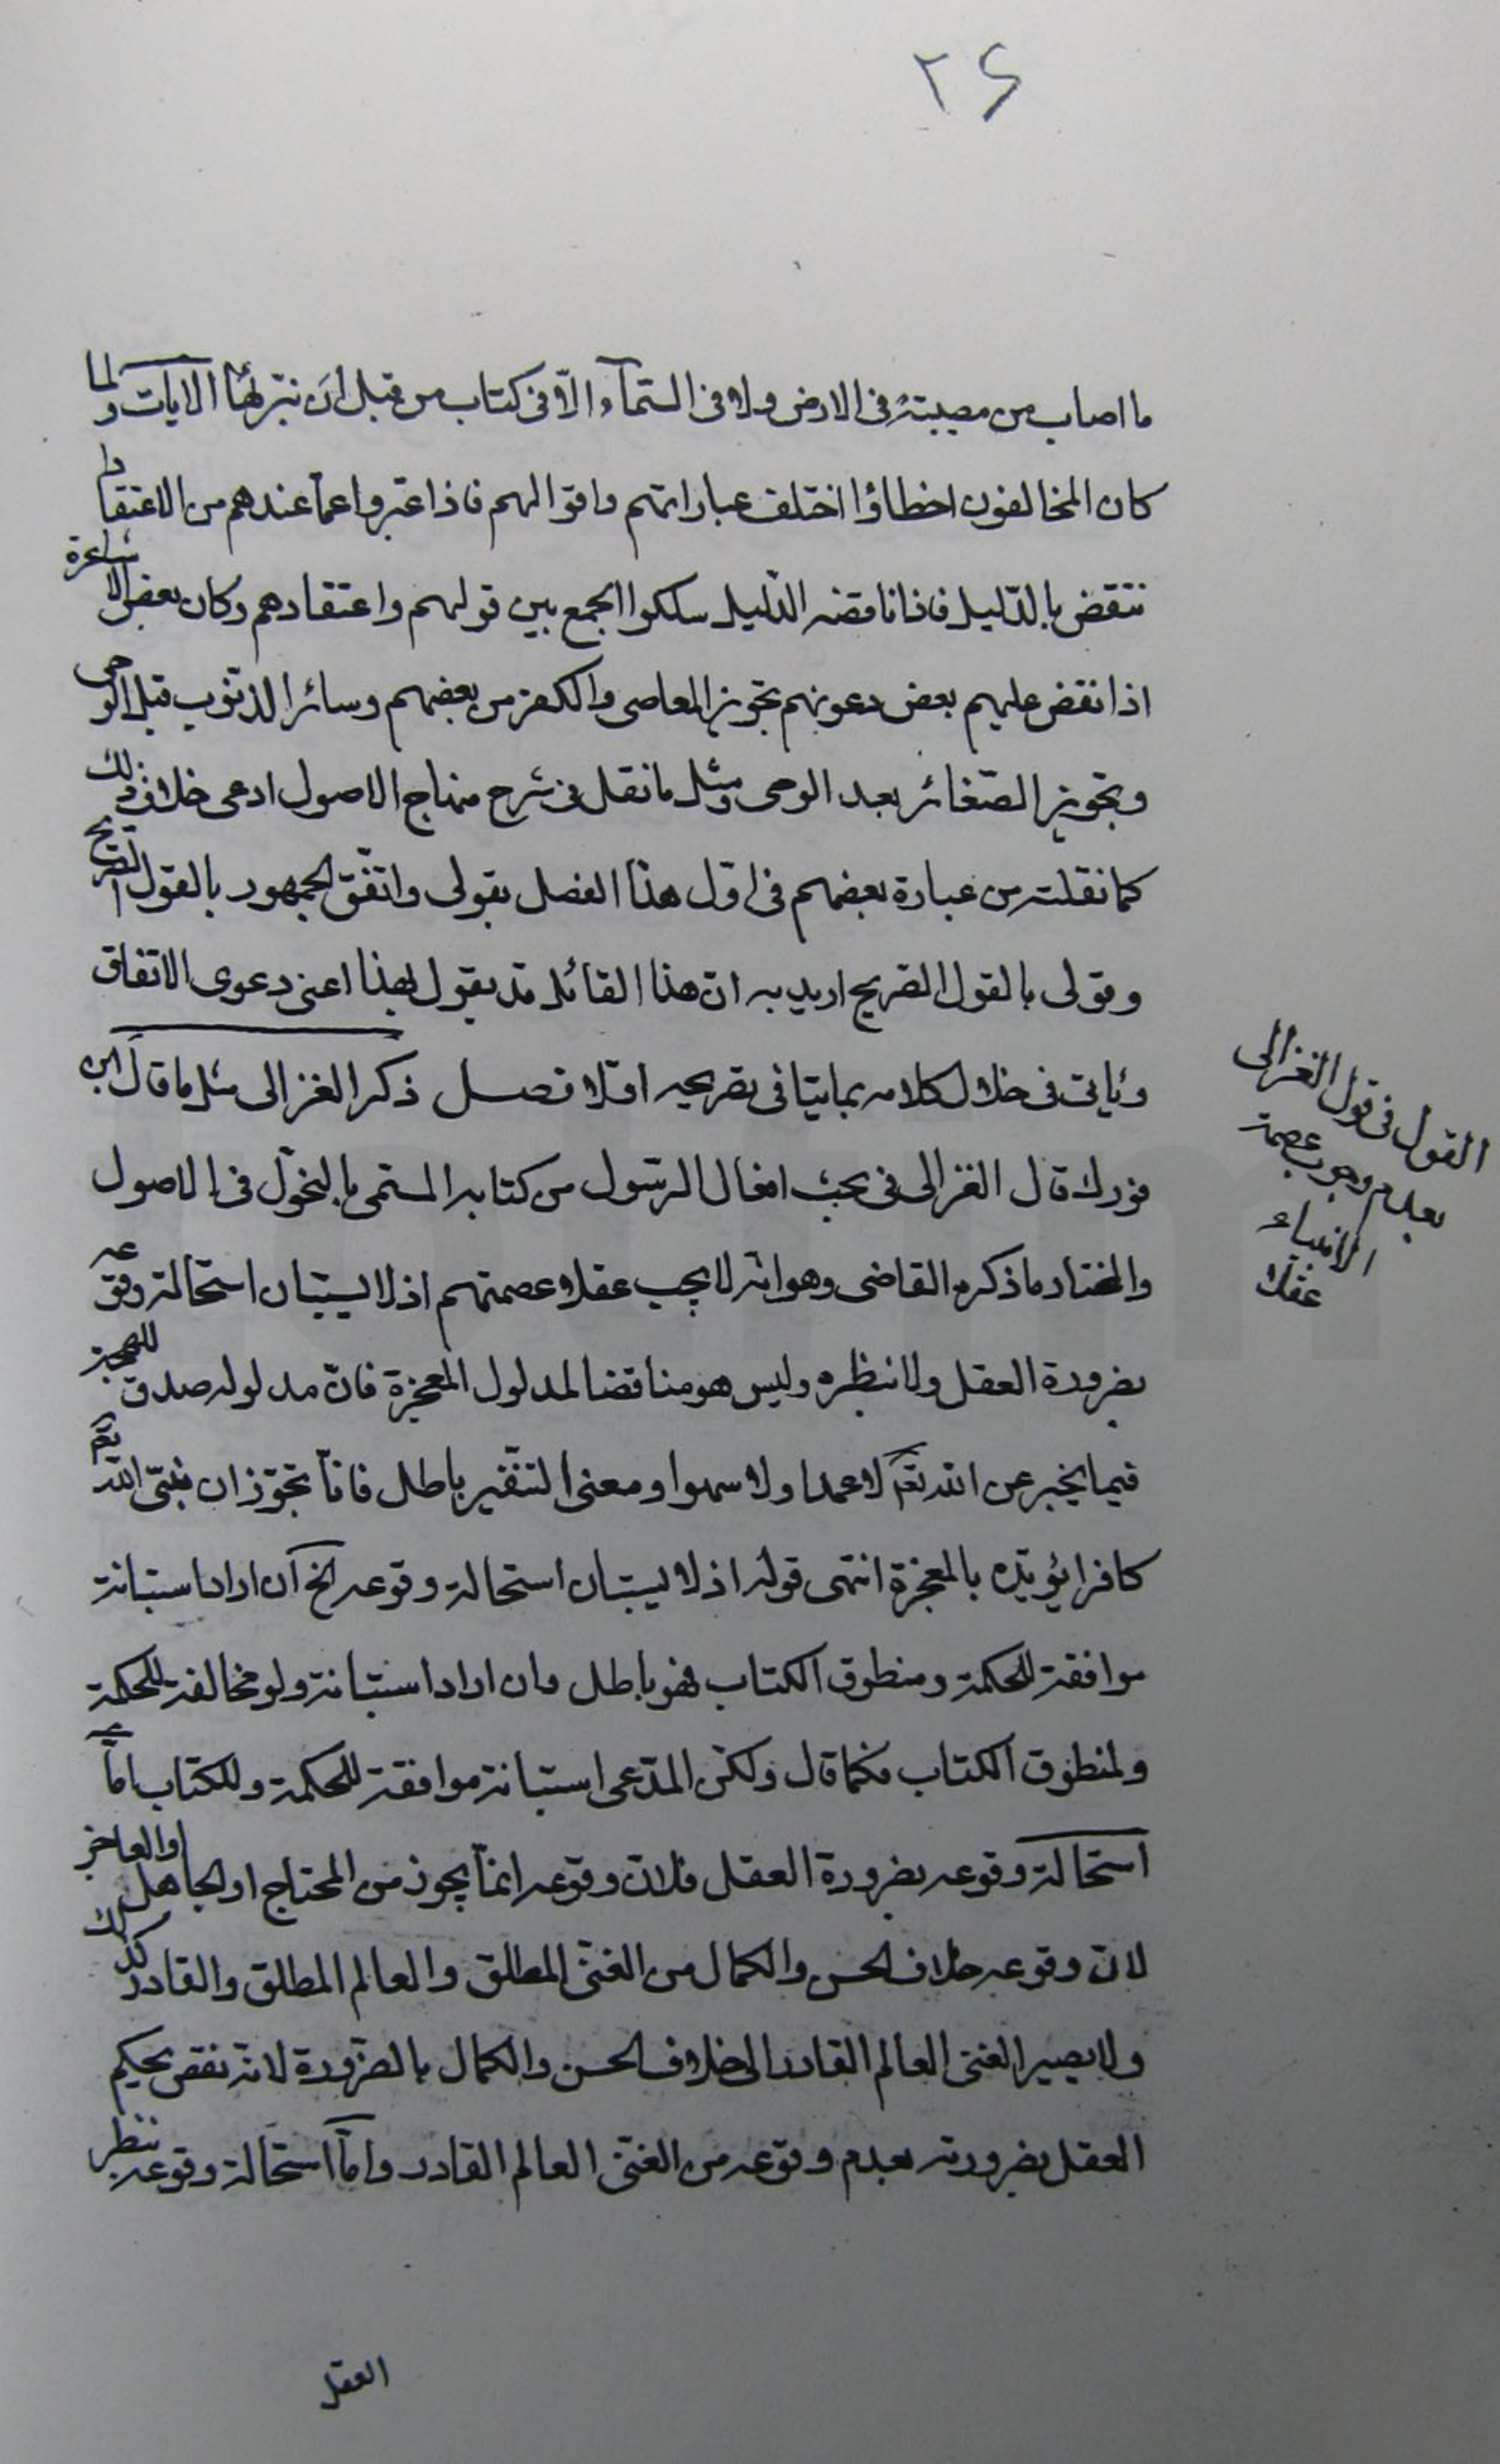 ٢۶
ما اصاب من مصيبة فى الارض ولا فى السّمآء الّا فى كتاب من قبل ان نبرئها الآيات ولما
كان المخالفون اخطاؤا اختلف عباراتهم واقوالهم فاذا عبّروا عمّا عندهم من الاعتقاد
ننقض بالدّليل فاذا ناقضه الدّليل سلكوا الجمع بين قولهم واعتقادهم وكان بعض الاشاعرة
اذا نقض عليهم بعض دعويهم بتجويز المعاصى والكفر من بعضهم وسائر الذنوب قبل الوحى
وبتجويز الصّغائر بعد الوحى ومثل ما نقل فى شرح منهاج الاصول ادعى خلاف ذلك
كما نقلت من عبارة بعضهم فى اوّل هذا الفصل بقولى واتّفق الجمهور بالقول الصّريح
وقولى بالقول الصّريح اريد به انّ هذا القائل قد يقول بهذا اعنى دعوى الاتفاق
ويأتى فى خلال كلامه بما ينافى تصريحه اوّلا فصل ذكر الغزالى مثل ما قال ابن
فورك قال الغزالى فى بحث افعال الرّسول من كتابه المسّمى بالنخوّل فى الاصول
والمختار ما ذكره القاضى وهو انّه لا يجب عقلا عصمتهم اذ لا يستبان استحالة وقوعه
بضرورة العقل ولا بنظره وليس هو مناقضا لمدلول المعجزة فانّ مدلوله صدق اللهجة
فيما يخبر عن الله تعم لا عمدا ولا سهوا ومعنى التنفّير باطل فانّا نجوّز ان ينبّئ الله تعم
كافرا يؤيّده بالمعجزة انتهى قوله اذ لا يستبان استحالة وقوعه الخ ان اراد استبانة
موافقة للحكمة ومنطوق الكتاب فهو باطل وان اراد استبانة ولو مخالفة للحكمة
ولمنطوق الكتاب فكما قال ولكنّ المدّعى استبانة موافقة للحكمة وللكتاب امّا
استحالة وقوعه بضرورة العقل فلانّ وقوعه انمّا يجوز من المحتاج او الجاهل او العاجز
لانّ وقوعه خلاف الحسن والكمال من الغنىّ المطلق والعالم المطلق والقادر كذلك
ولا يصير الغنى العالم القادر الى خلاف الحسن والكمال بالضّرورة لانّه نقص يحكم
العقل بضرورته بعدم وقوعه من الغنىّ العالم القادر وامّا استحالة وقوعه بنظر
العقل
القول فى قول الغزالى
بعدم وجوب عصمة
الانبياء
عقلا